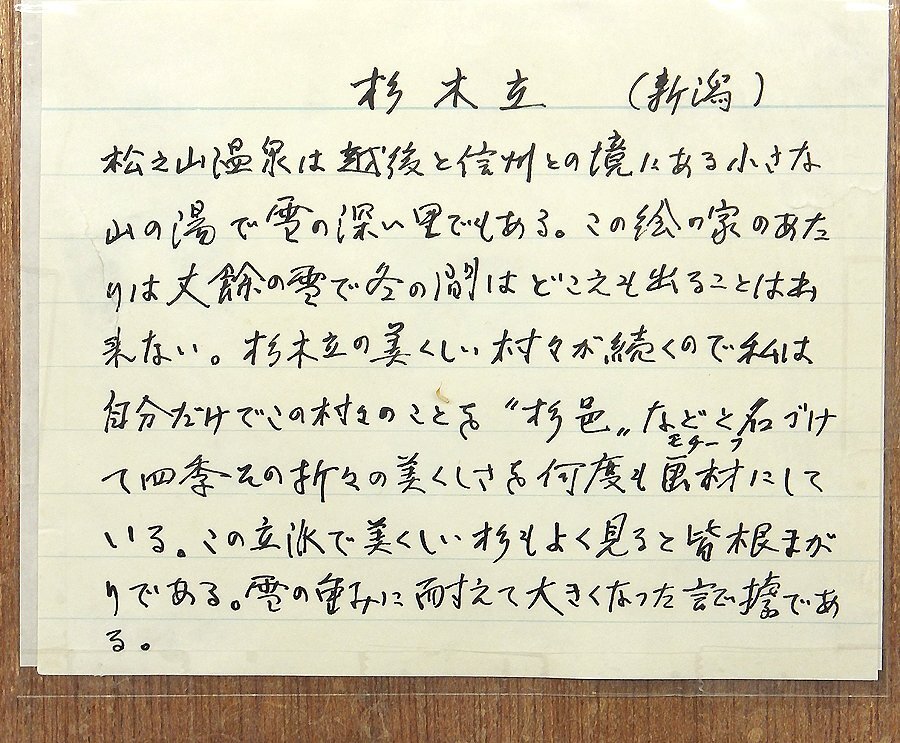 杉木立 (新潟)
松之山温泉は越後と信州との境にある小さな
山の湯で雪の深い里でもある。この絵の家のあた
りは丈餘の雪で冬の間はどこえも出ることは出
来ない。杉木立の美くしい村々が続くので私は
自分だけでこの村々のことを〝杉邑〟などと名づけ
モチーフ
て四季その折々の美くしさを何度も画材にして
いる。この立派で美くしい杉もよく見ると皆根まが
りである。雪の重みに耐えて大きくなった証拠であ
る。